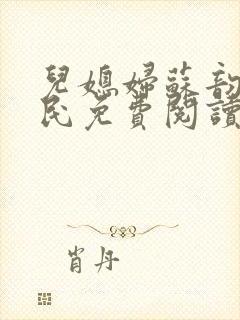 兒媳婦蘇韵
民免費閱讀
肖丹